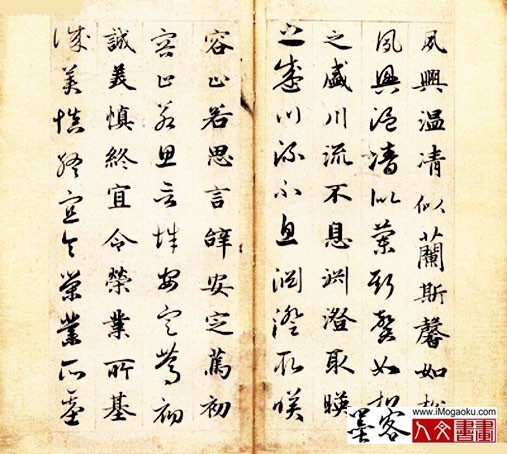 夙興温清似蘭斯馨如松
夙興温清似蘭斯馨如松
之盛川流不息渊澄取暎
之盛川流不息渊澄取暎
容止若思言辝安定篤初
容止若思言辝安定篤初
誠美慎終宜令榮業所基
誠美慎終宜令榮業所基
www.iMogaoku.com
墨客
人文書畫